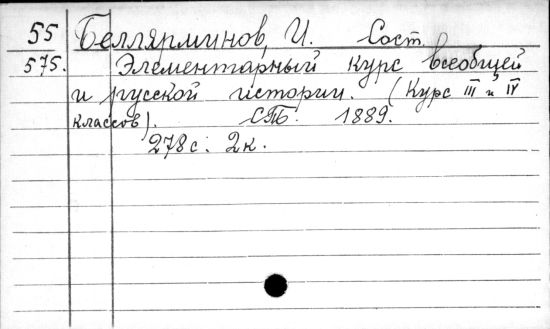 55 Беллярминов, И. Сост.
575. Элементарный курс всеобщей
и русской истории. (Курс III и IV
классов). СПб. 1889.
278 с. 2к.